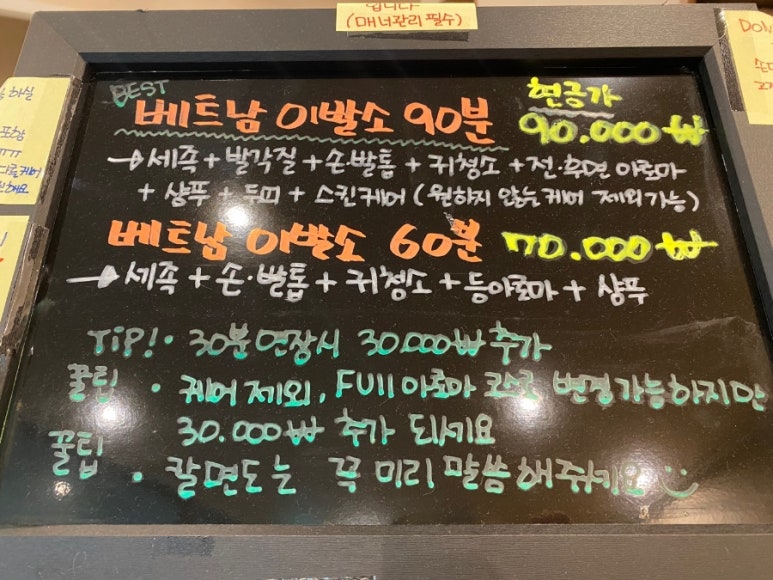 (매너관리 필수)
BEST
베트남 이발소 90분 현금가 90.000₩
→ 세족 + 발각질 + 손·발톱 + 귀청소 + 전·후면 아로마
+ 샴푸 + 두피 + 스킨케어 (원하지 않는 케어 제외 가능)
베트남 이발소 60분 70.000₩
→ 세족 + 손·발톱 + 귀청소 + 등아로마 + 샴푸
TiP! · 30분 연장시 30.000₩ 추가
꿀팁 · 케어 제외, FUll 아로마 코스로 변경 가능하지만
30.000₩ 추가 되세요
꿀팁 · 칼면도는 꼭 미리 말씀해주세요